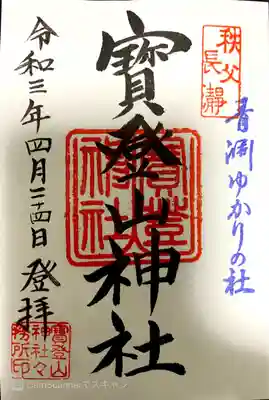 秩父
長瀞
青淵ゆかりの社
寶登山神社
寶登山神社
令和三年四月二十四日 登拝
寶登山
神社々
務所印
CamScannerでスキャン